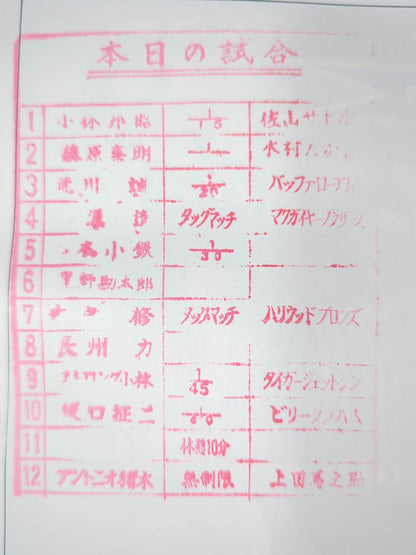 本日の試合
1 小林邦昭 1/15 佐山サトル
2 藤原喜明 1 木村たかし
3 荒川誠 1/20 バッファロー
4 タッグマッチ マクガイヤーブラザーズ
5 小鉄 1/30
6 星野勘太郎
7 修 メッスマッチ ハリウッドブロンズ
8 長州力
9 ストロング小林 1/45 タイガージェットシン
10 坂口征二 ビリー
11 休憩10分
12 アントニオ猪木 無制限 上田馬之助